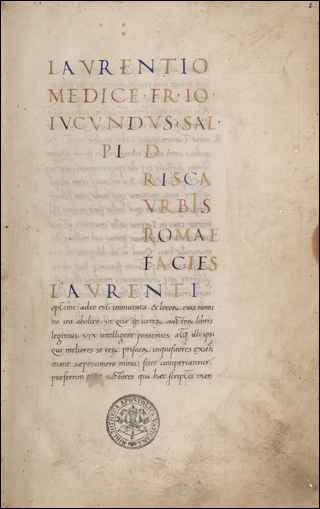 1.
LAVRENTIO
MEDICE·FR·IO·
IVCVNDVS·SAL·
PL D
RISCA
VRBIS
ROMAE
FACIES
LAVRENTI
optime adeo est immutata & locor̄ eius nomi
na ita abolita: ut quæ in ueter auctor libris
legimus uix intelligere possimus atq illi ipsi
qui meliores se rer priscar inquisitores existi
mant sæpenumero minus scire comperiantur.
præsertim auctores qui hæc scriptis man
BIBLIOTECA APOSTOLICA